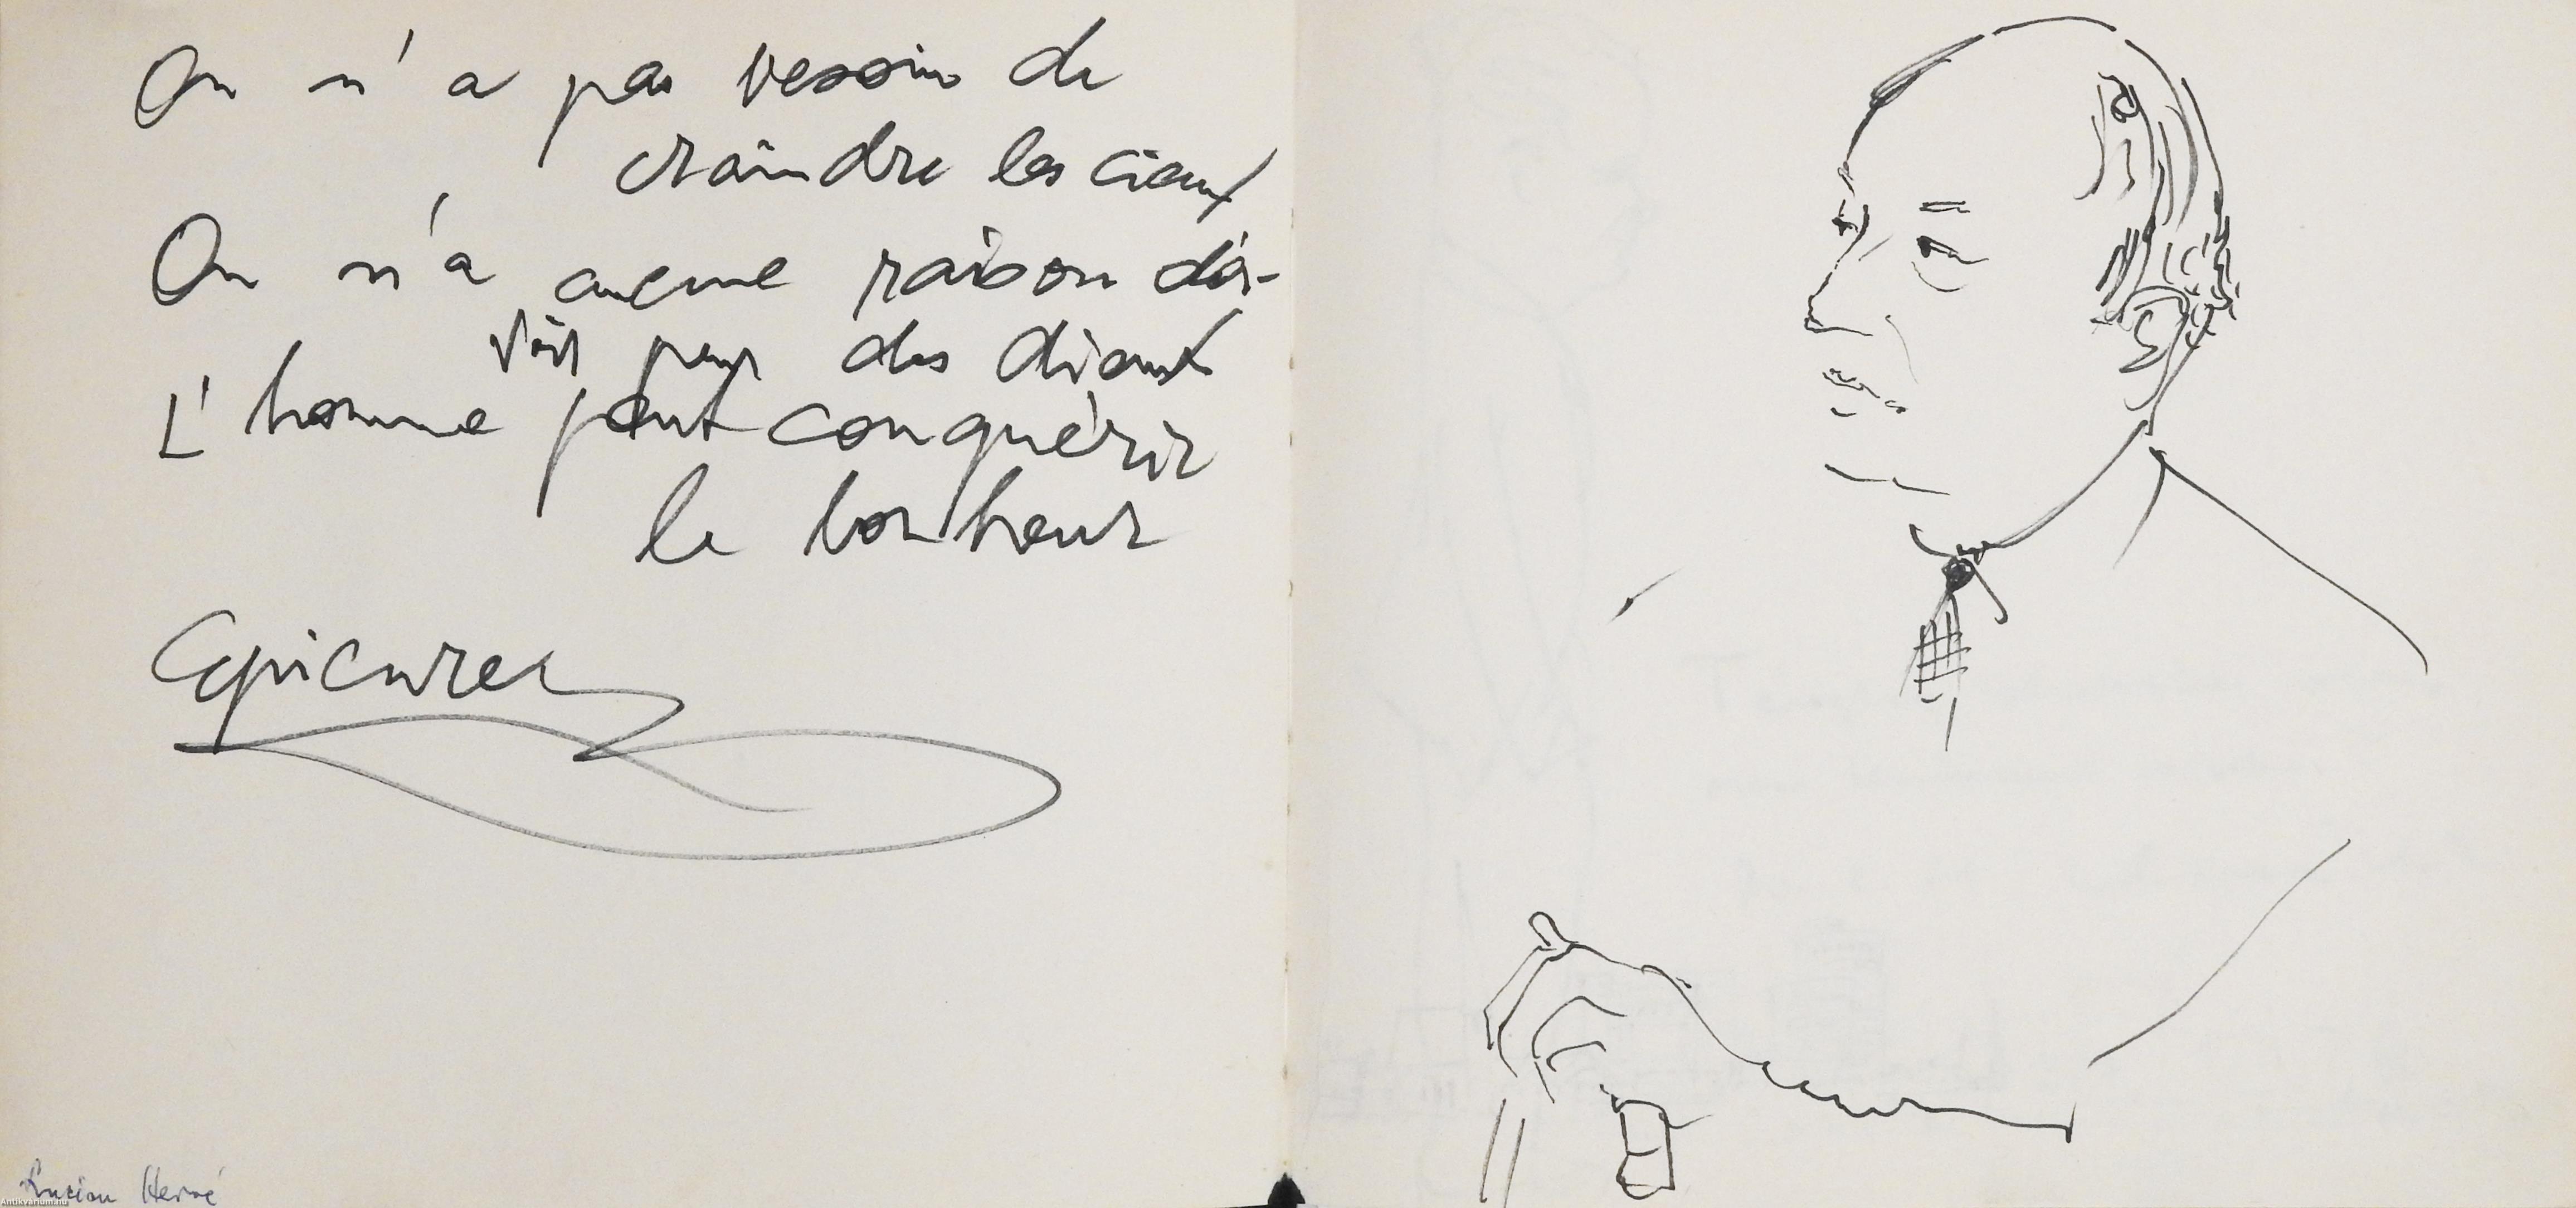 On n'a pas besoin de
craindre les cieux
On n'a aucune raison d'a-
voir peur des dieux
L'homme peut conquérir
le bonheur
Epicure
Lucien Hervé
Antikvarium.hu